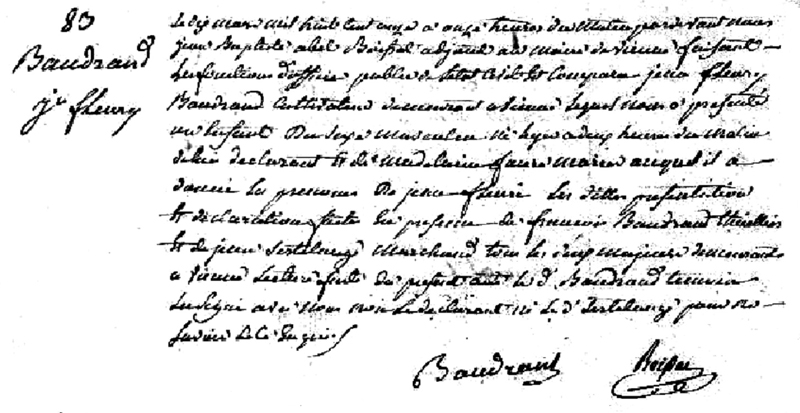 83
Baudrand
jn fleury
Le dix mars mil huit cent onze a onze heures du Matin pardevant nous
jean Baptiste abel Boissat adjoint au maire de vienne faisant
les fonctions d'officier public de l'état Civil Est Comparu jean fleury
Baudrand Cultivateur demeurant a vienne lequel nous a présenté
un Enfant Du sexe masculin né hyer a deux heures du Matin
de lui declarant Et de Madelaine faure mariés auquel il a
donné les prenoms De jean fleuri les dittes presentation
Et declaration faite En présence de francois Baudrand
Et de jean Marchand tous les deux majeurs demeurants
a vienne Lecture faite du présent acte le d. Baudrand temoin
a signé avec nous non le declarant ni le d. pour ne
savoir de ce Enquis
Baudrand